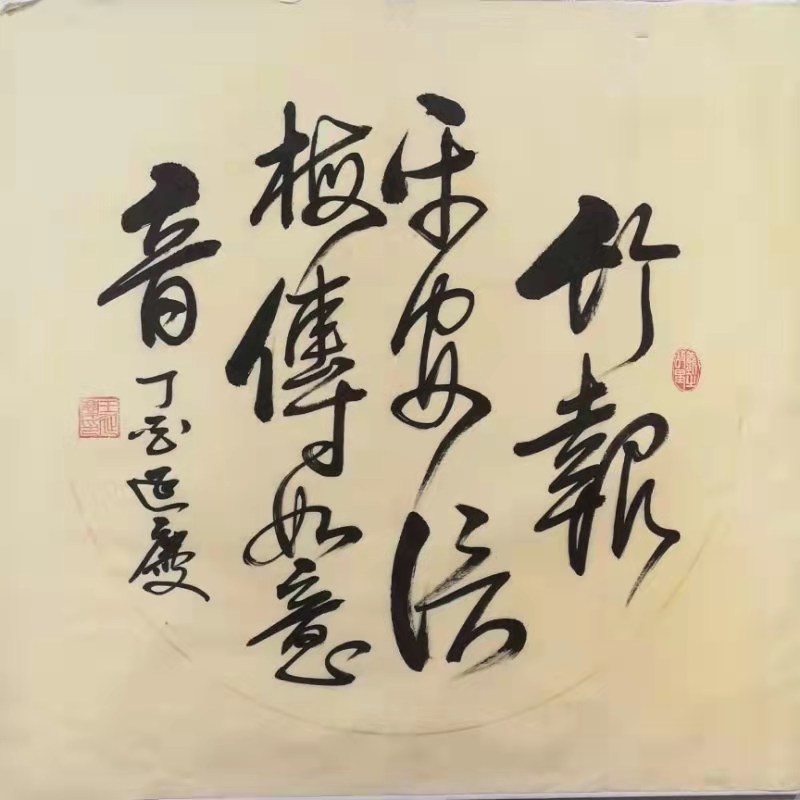 竹報
平安信
梅傳如意
音
丁酉延慶